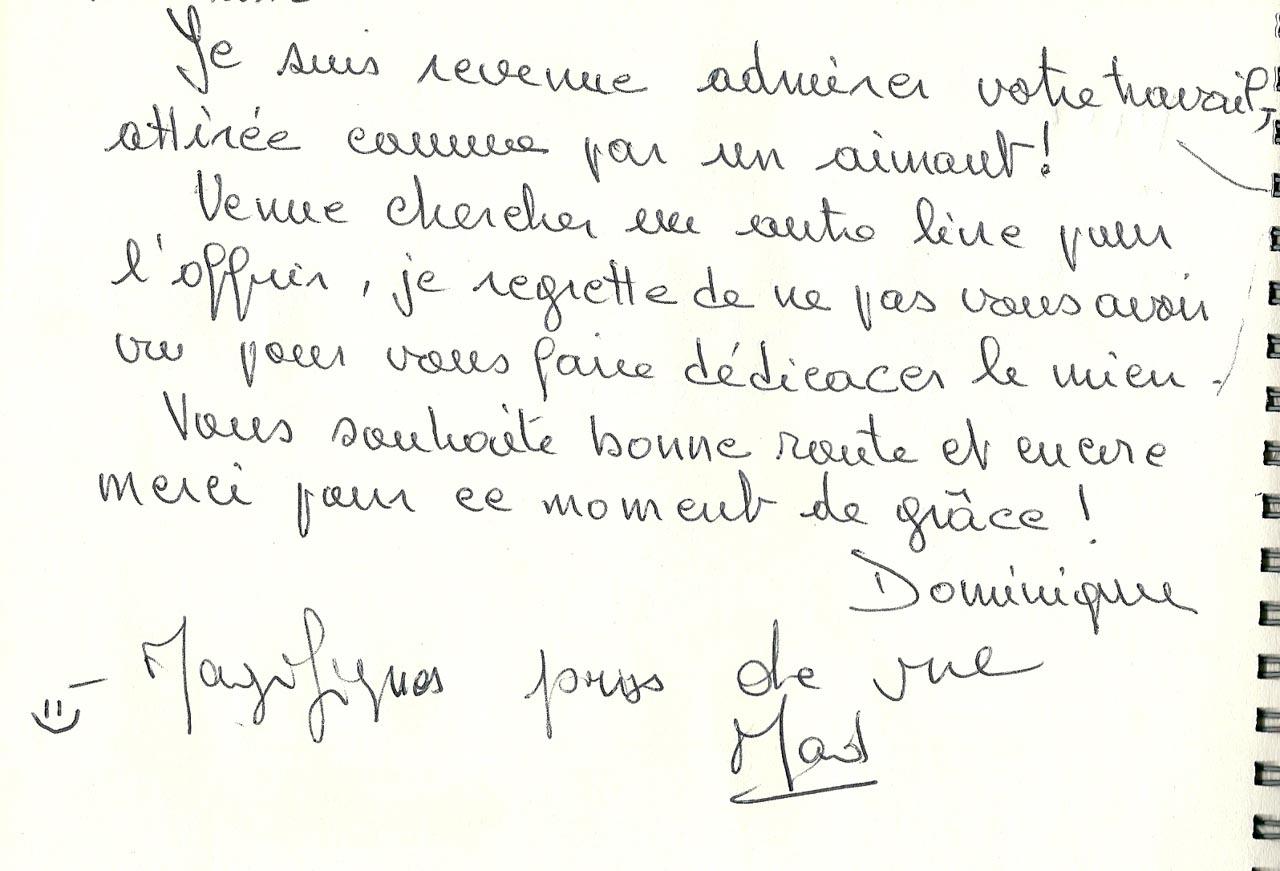 Je suis revenue admirer votre travail,
attirée comme par un aimant !
Venue chercher un autre livre pour
l'offrir, je regrette de ne pas vous avoir
vu pour vous faire dédicacer le mien.
Vous souhaite bonne route et encore
merci pour ce moment de grâce !
Dominique
Magifiques prises de vue